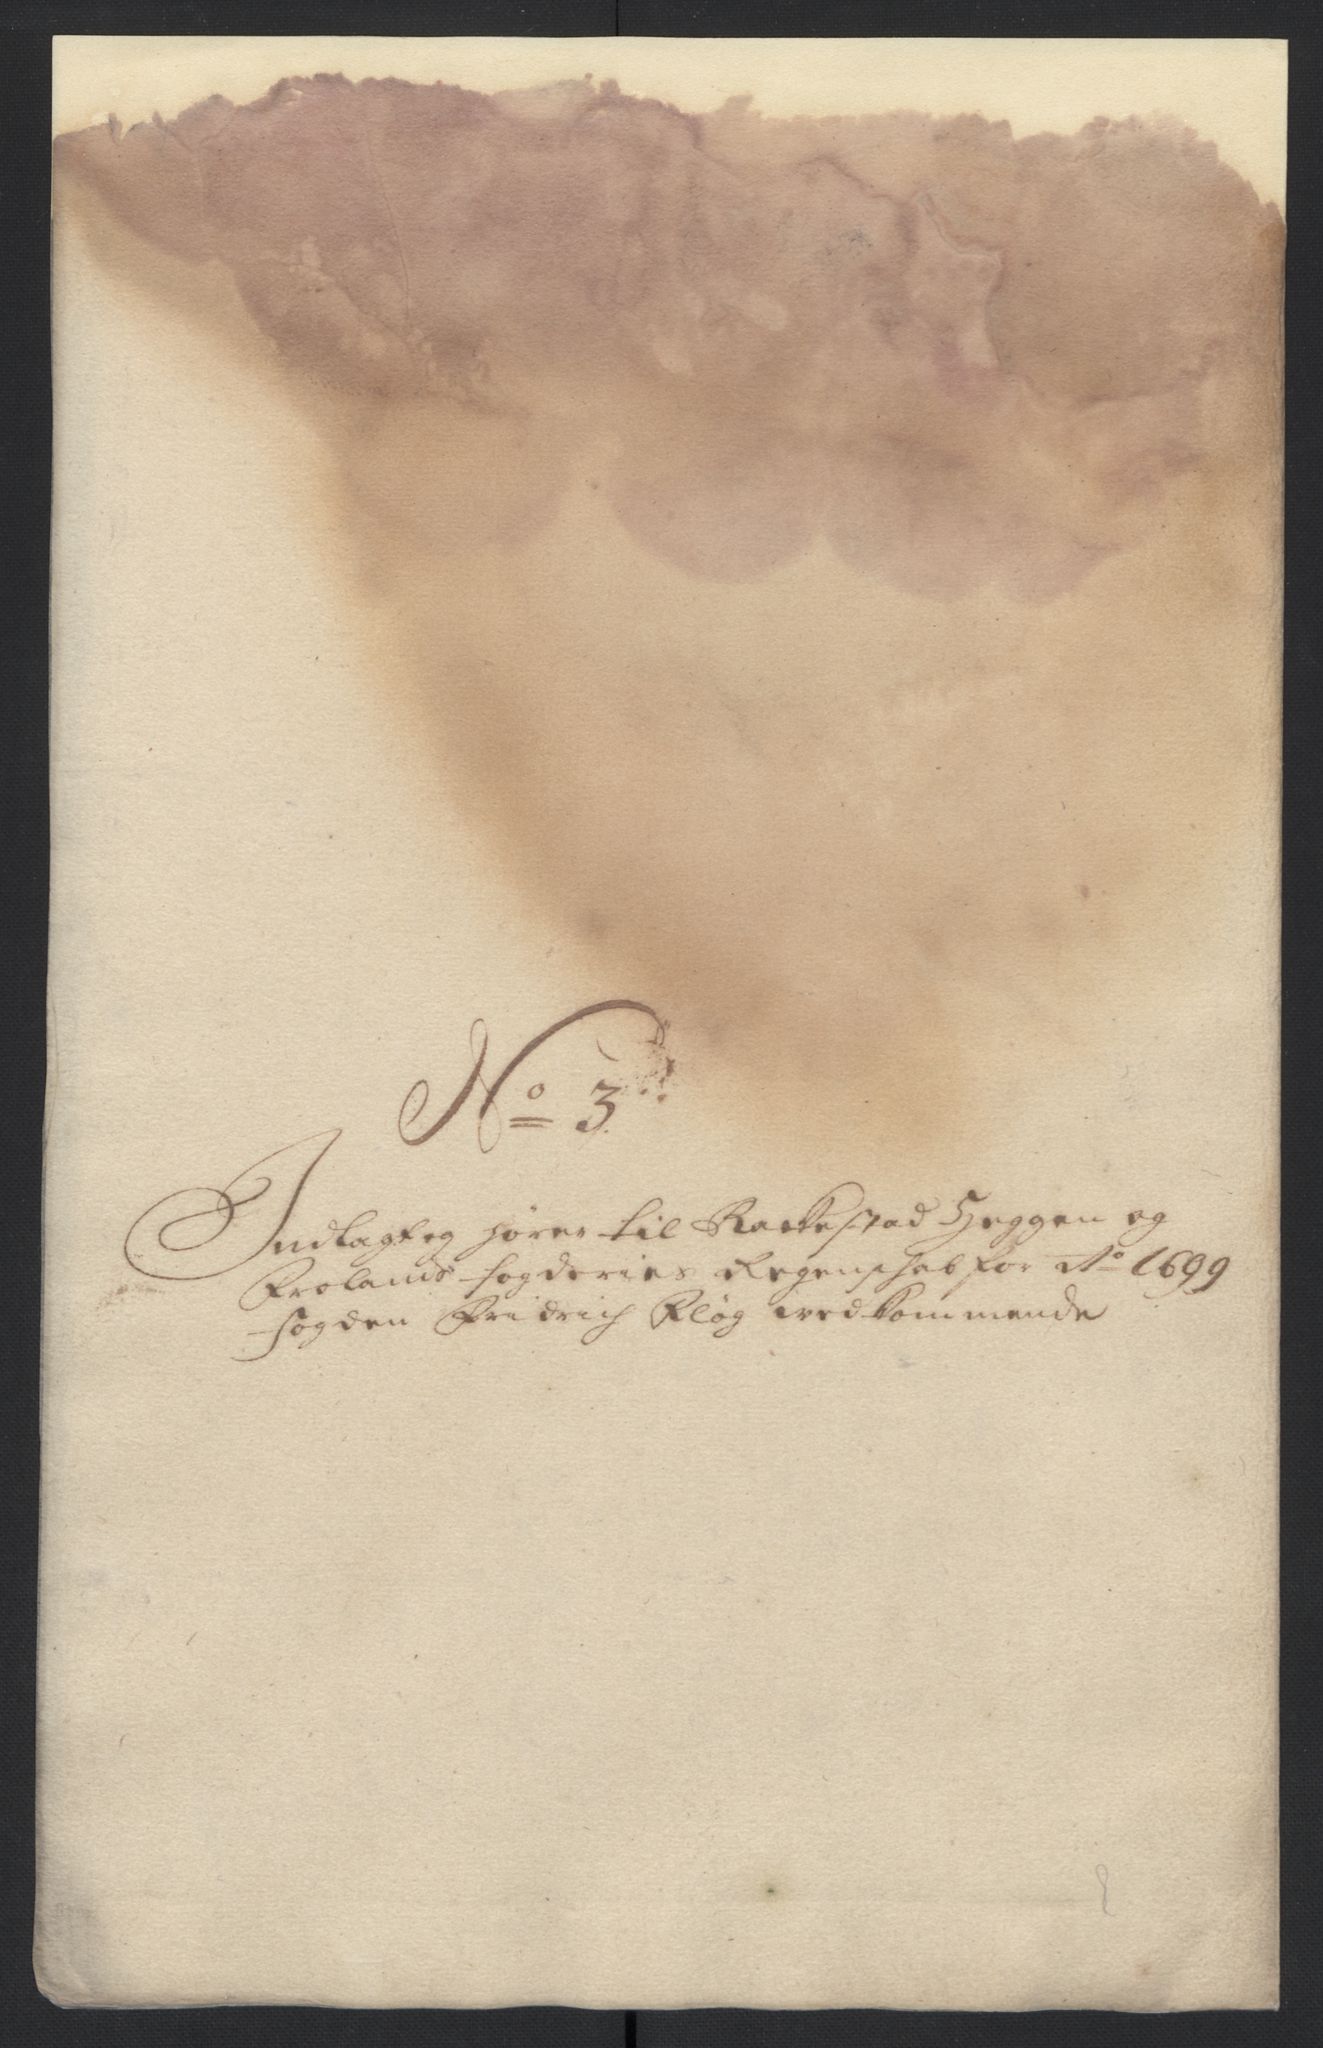 No 3
Indlagt og hører til Rackestad Heggen og
Frolands fogderies Regenschab for Ao 1699
fogden Fridrich Kløg wedkommende